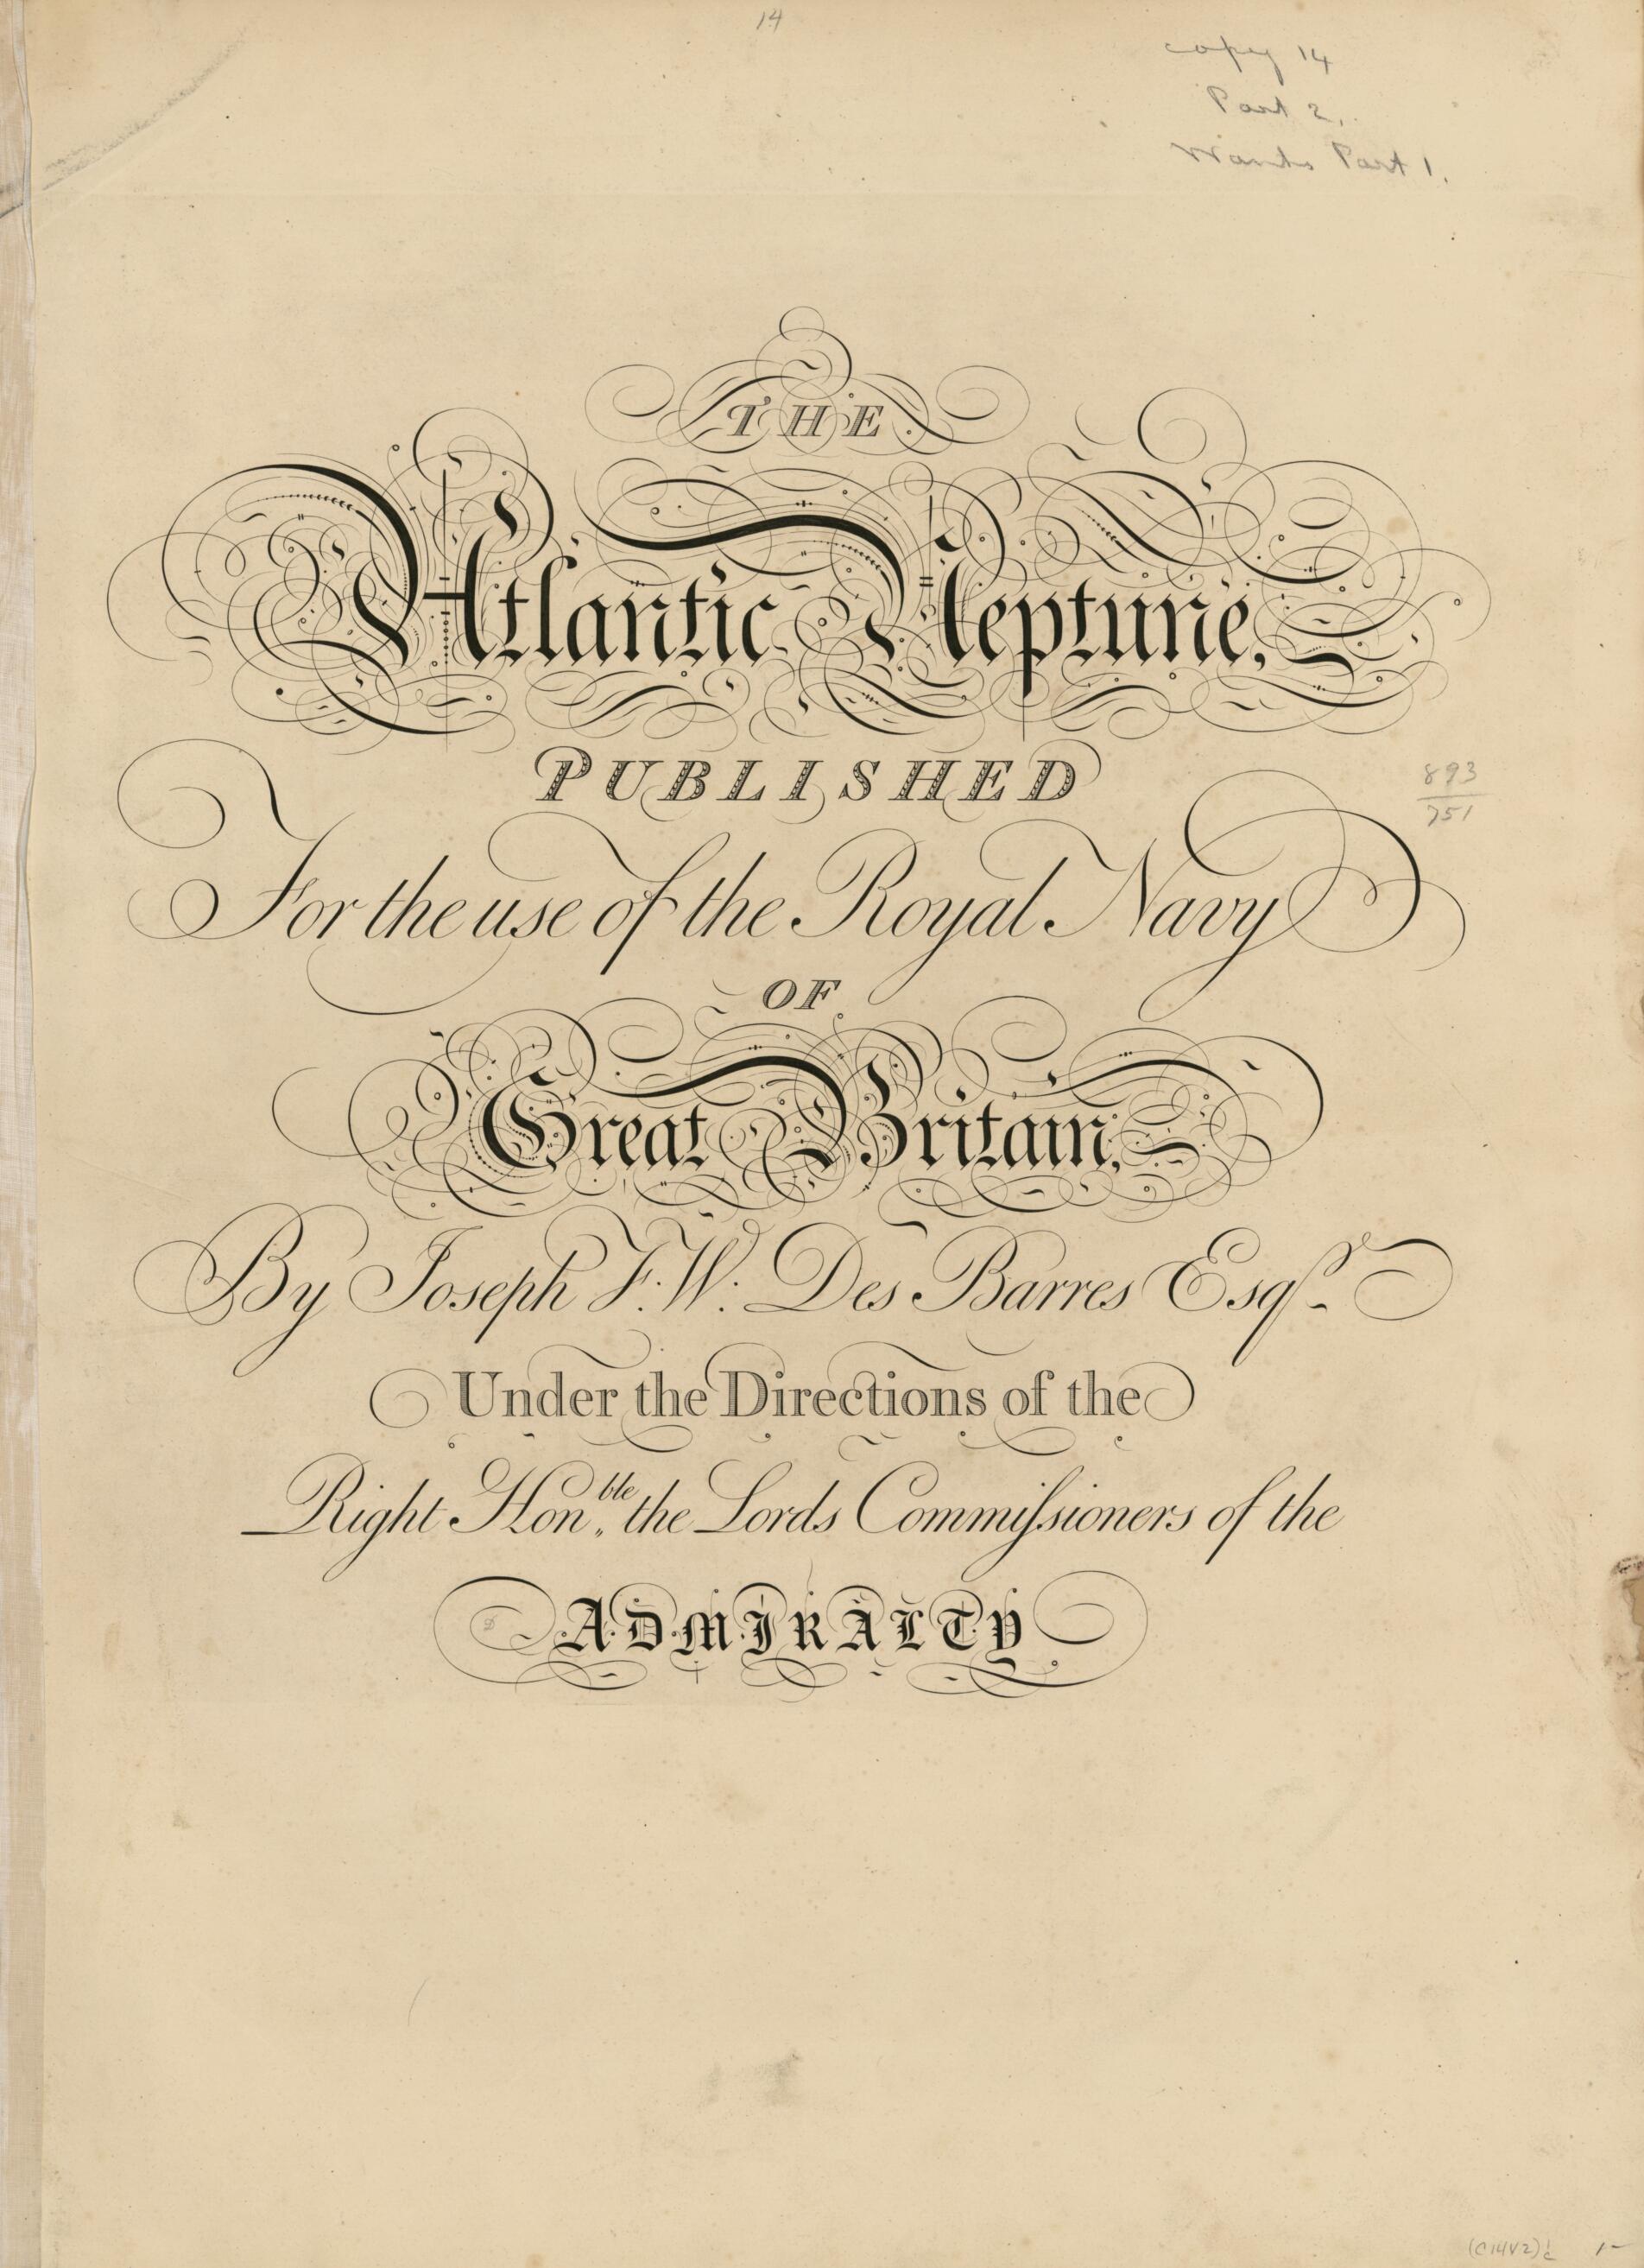 14
copy 14
Part 2.
Wants Part 1.
THE
Atlantic Neptune,
PUBLISHED
893
751
For the use of the Royal Navy
OF
Great Britain,
By Joseph F. W. Des Barres Esqr.
Under the Directions of the
Right Honble. the Lords Commiſsioners of the
ADMIRALTY
(C14V2)